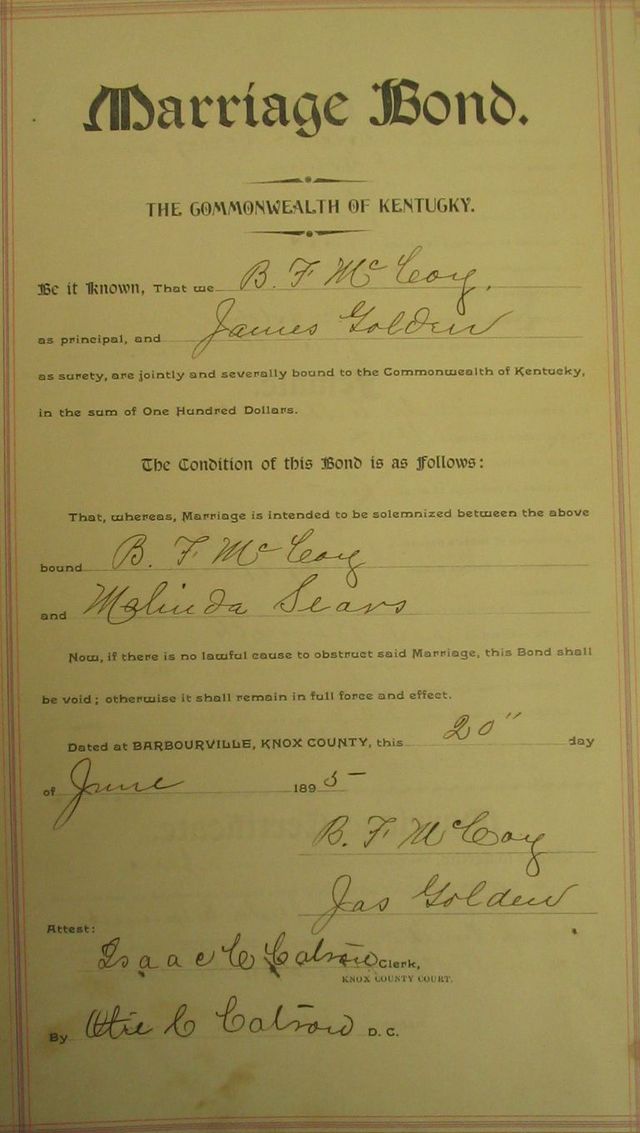 Marriage Bond.
THE COMMONWEALTH OF KENTUCKY.
Be it Known, That we B. F McCoy.
as principal, and James Golden
as surety, are jointly and severally bound to the Commonwealth of Kentucky,
in the sum of One Hundred Dollars.
The Condition of this Bond is as Follows:
That, whereas, Marriage is intended to be solemnized between the above
bound B. F McCoy
and Malinda Sears
Now, if there is no lawful cause to obstruct said Marriage, this Bond shall
be void; otherwise it shall remain in full force and effect.
Dated at BARBOURVILLE, KNOX COUNTY, this 20" day
of June 1895
B. F McCoy
Jas Golden
Attest:
Isaac C Catron Clerk,
KNOX COUNTY COURT.
By C Catron D. C.